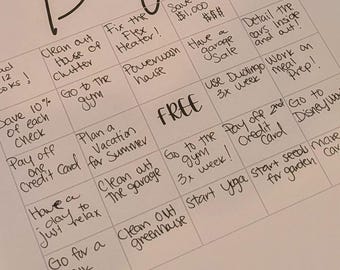 12
Clean out
House of
Clutter
Fix the
Flex
Heater!
Save
$1,000
Save 10%
of each
Check
Go to the
gym
Powerwash
house
Have a
garage
Sale
Detail the
cars inside
and out!
Pay off
one
Credit Card
Plan a
Vacation
for Summer
FREE
use Duolingo
3x week
Work on
meal
Prep!
Have a
day to
just relax
Clean out
the garage
Go to the
gym
3x week!
Pay off 2nd
Credit
Card
Go to
Go for a
Clean out
greenhouse
start yoga
start seeds
for garden
move